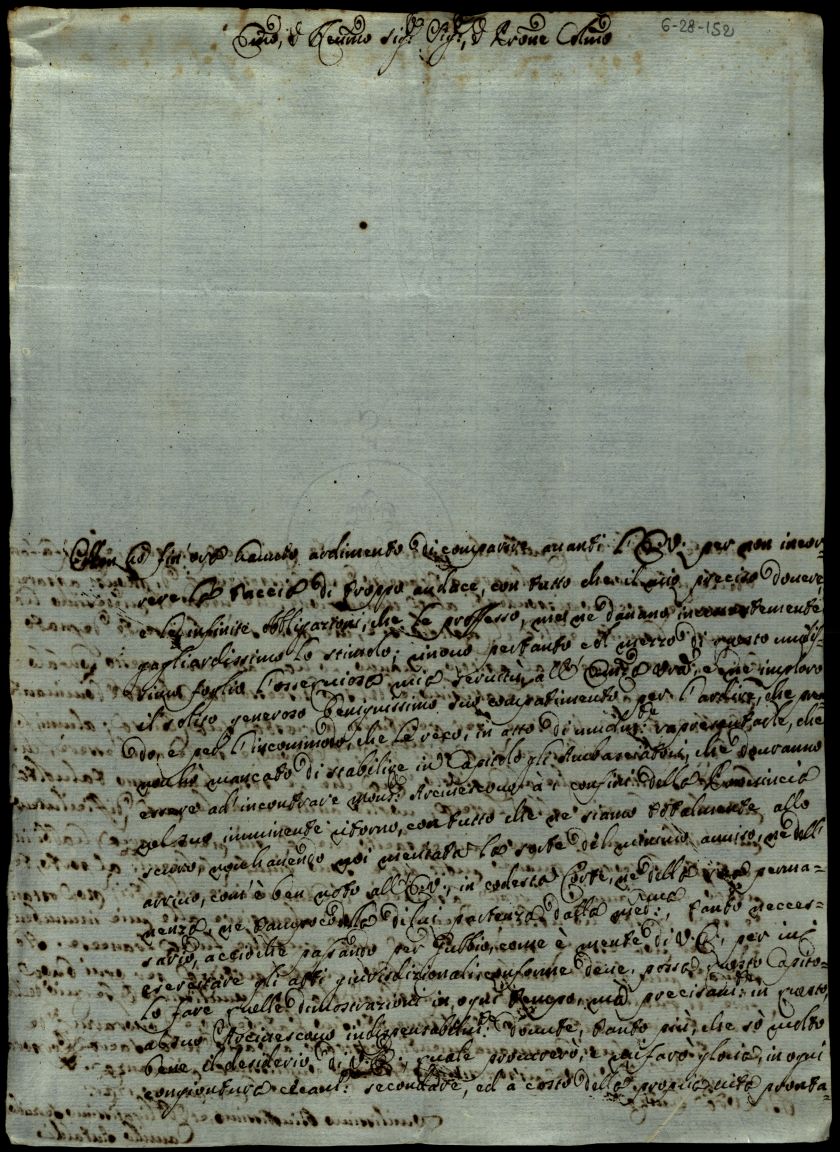 6-28-152
Emo, e Remo Sigr. Sigr, e Prone Colmo
Non hò fin' ora havuto ardimento di comparire avanti l'E.V. per non incor-
rere la taccia di troppo audace, con tutto che il mio preciso dovere,
e le infinite obbligazioni, che le professo, me ne davano incessantemente
gagliardissimo lo stimolo; pertanto col mezzo di questo
foglio l'ossequiosa mia servitù all' Emza Vra, e ne imploro
il solito generoso benignissimo suo compatimento per l'ardire, che pren-
do, e pel l'incommodo, che le reco in atto di rapresentarle, che
non hò mancato di stabilire in Capitolo gli Ambasciatori, che dovranno
essere ad' incontrare Monsr. Arcivescovo a i confini della Provincia
nel suo imminente ritorno, con tutto che ne siamo totalmente allo
scuro, non havendo noi meritata la sorte del minimo avviso, ne dell'
arrivo, com' è ben noto all' E.V., in codesta Corte, ne della sua perma-
nenza, ne di lui partenza dalla med:ma, tanto necces-
sario, acciòche passando per Gubbio, come è mente di V.E., per ivi
esercitare gli atti giurisdizionali conforme deve, possa questo Capito-
lo fare quelle dimostrazioni in ogni tempo, mà precisamte: in questo,
al suo Arcivescovo indispensabilmte: dovute, tanto più, che sò molto
bene il desiderio di V.E., quale procurerò, e mi farò gloria, in ogni
congiontura secondare, ed a costo della propria vita pronta-